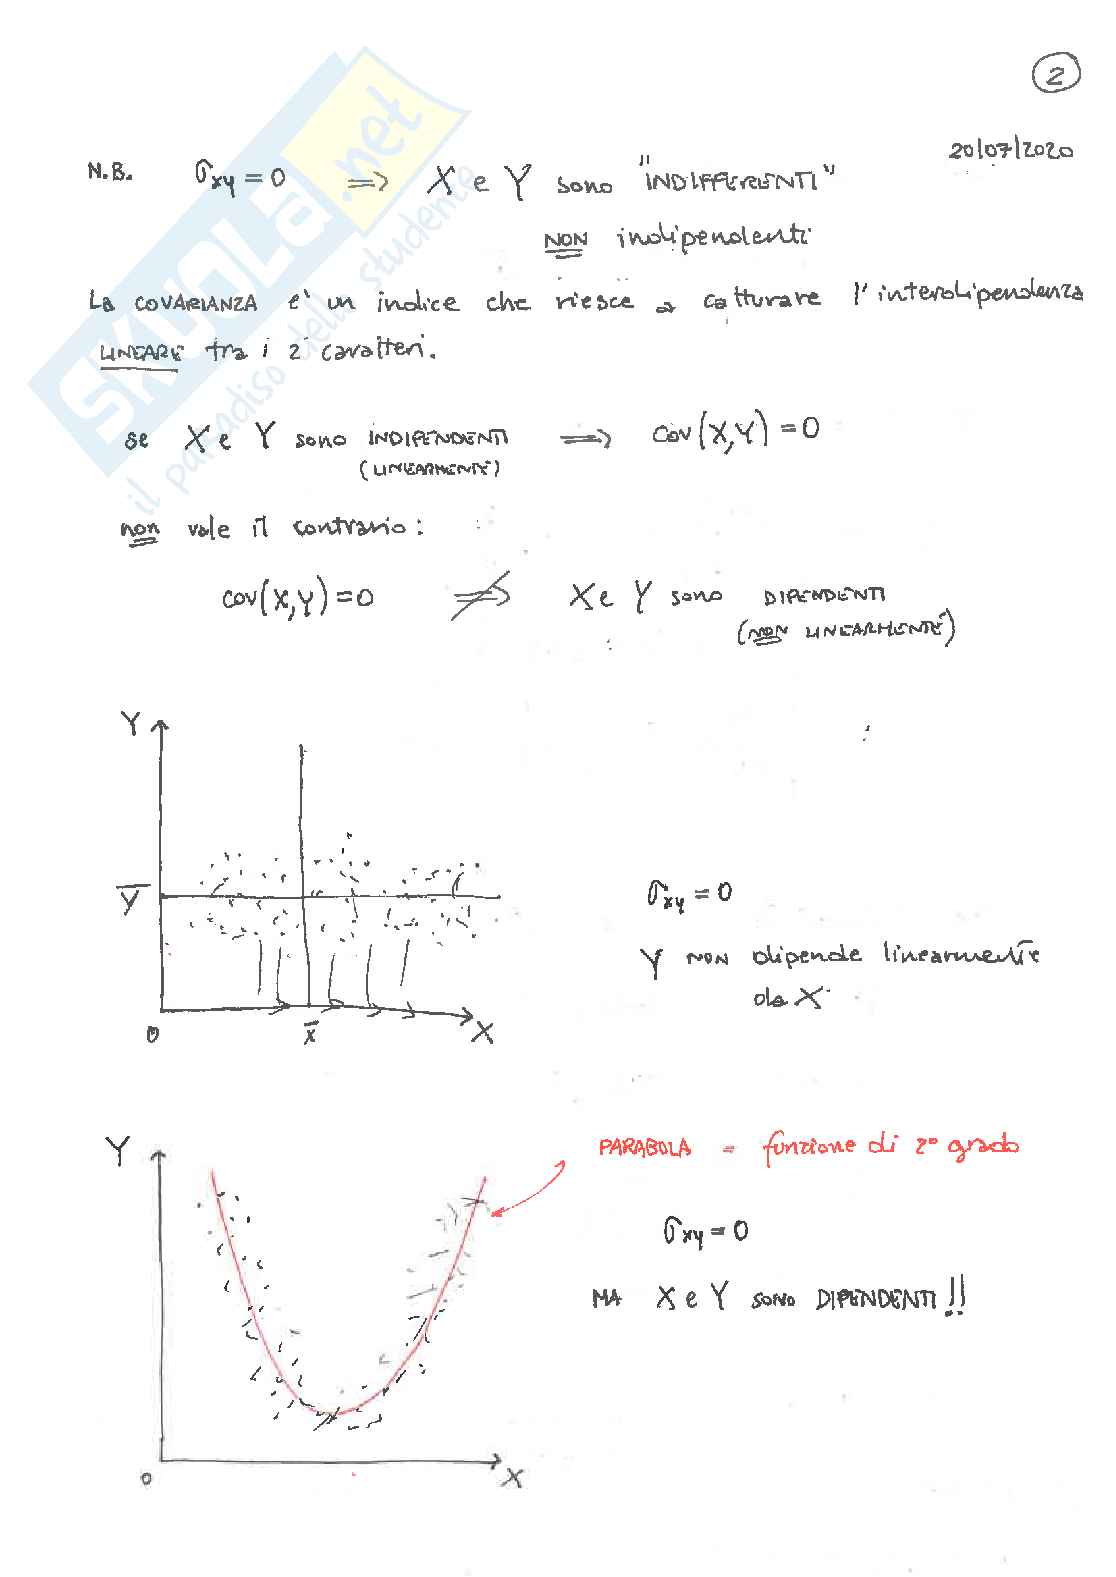 2
20/07/2020
N.B. σxy = 0 ⟹ X e Y sono "INDIFFERENTI"
NON indipendenti
La COVARIANZA e' un indice che riesce a catturare l'interdipendenza
LINEARE tra i 2 caratteri.
se X e Y sono INDIPENDENTI ⟹ cov(X,Y) = 0
(LINEARMENTE)
non vale il contrario:
cov(X,Y) = 0 ⇏ X e Y sono DIPENDENTI
(NON LINEARMENTE)
Y
Y̅
σxy = 0
Y NON dipende linearmente
da X
0 x̅ X
Y
PARABOLA = funzione di 2° grado
σxy = 0
MA X e Y SONO DIPENDENTI!!
0 X
SKUOLA.net
il paradiso dello studente